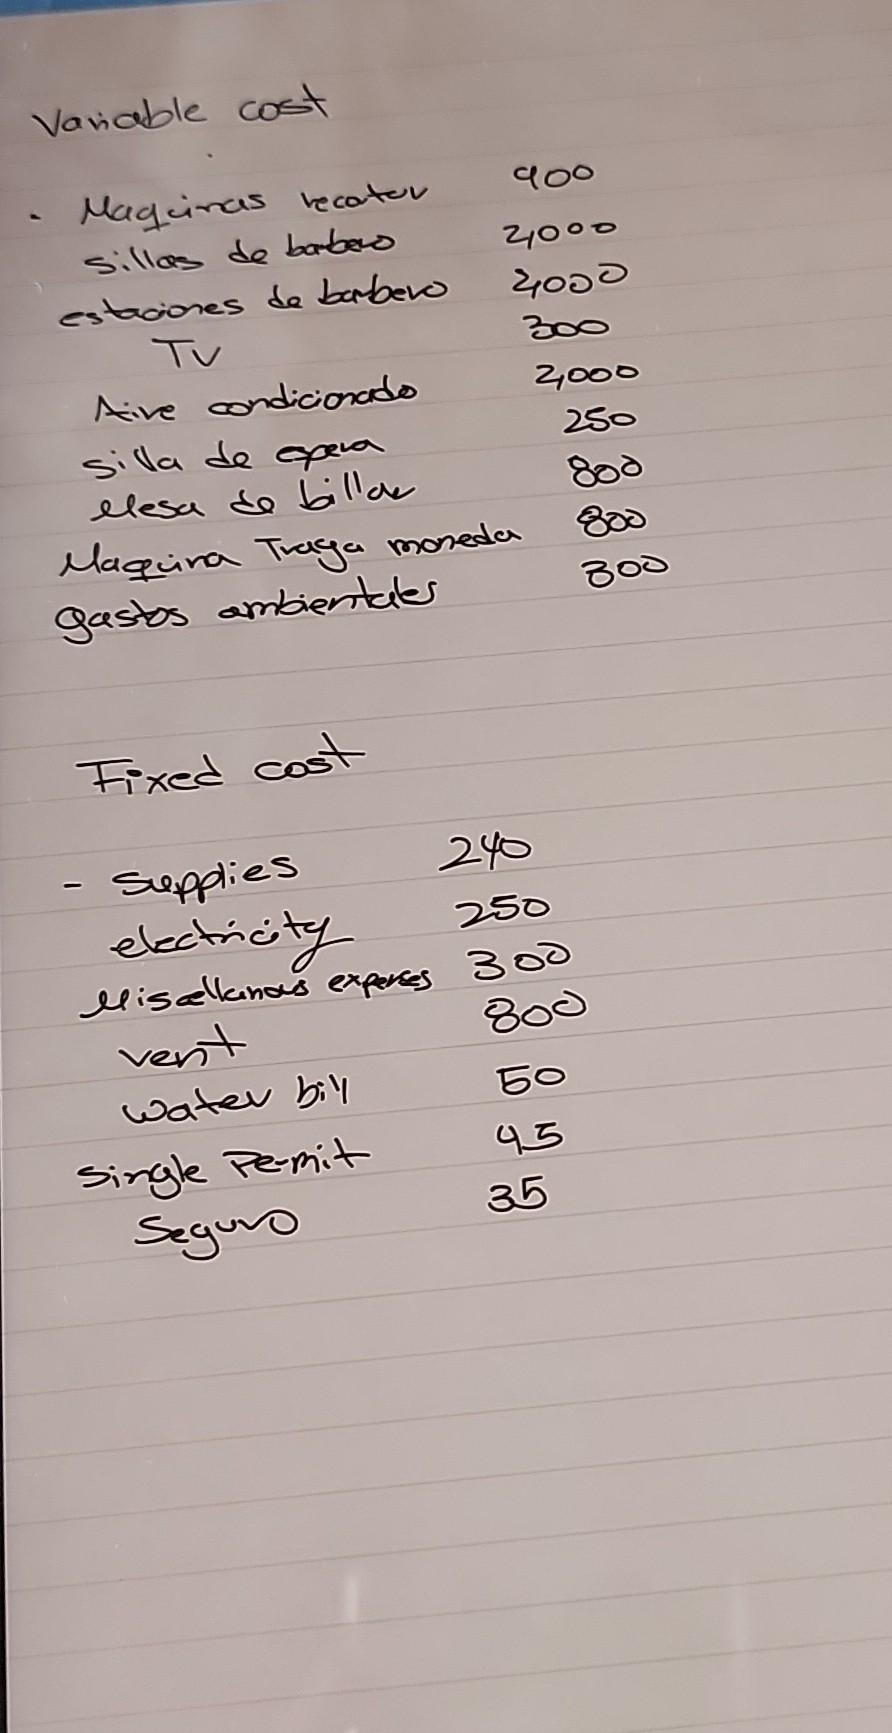 Variable cost
. Maquinas recortar 900
sillas de barbero 2,000
estaciones de barbero 2,000
TV 300
Aire condicionado 2,000
silla de espera 250
Mesa de billar 800
Maquina Traga moneda 800
gastos ambientales 300
Fixed cost
- Supplies 240
electricity 250
Miscellanous expenses 300
rent 800
water bill 50
Single Permit 45
Seguro 35